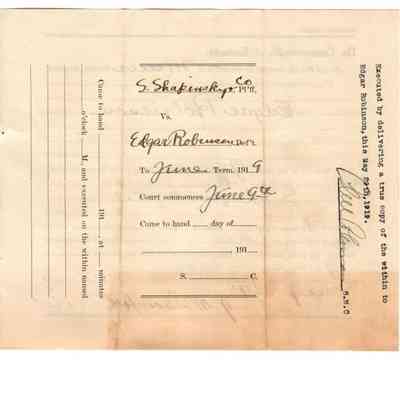 S. Shapinsky & Co Pltf.
Vs.
Edgar Robinson Deft.
To June Term, 1919
Court commences June 9th
Come to hand day of
, 191
S. C.
Came to hand 191 , at minutes
o'clock M, and executed on the within named
Executed by delivering a true copy of the within to
Edgar Robinson, this May 29th, 1919.